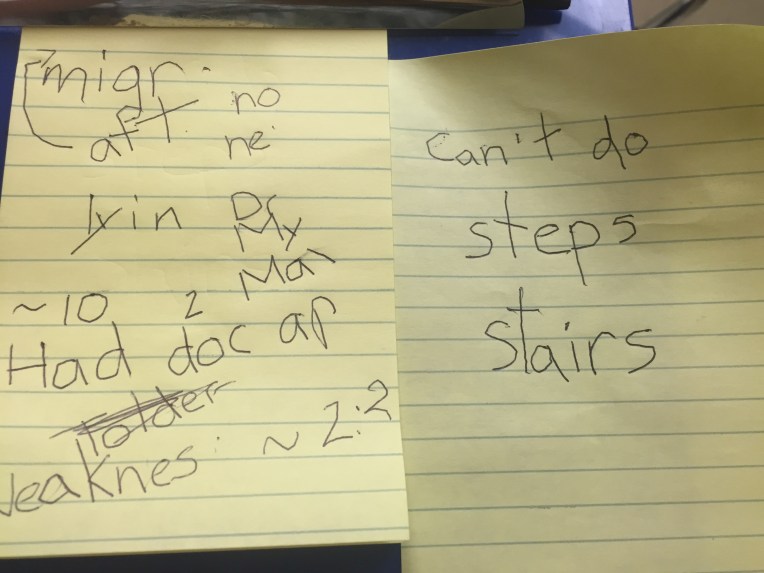 migr.
aft no
ne
lyin Dr
My
Man
~10 2
Had doc ap
folder
weaknes: ~2:2
can't do
steps
stairs